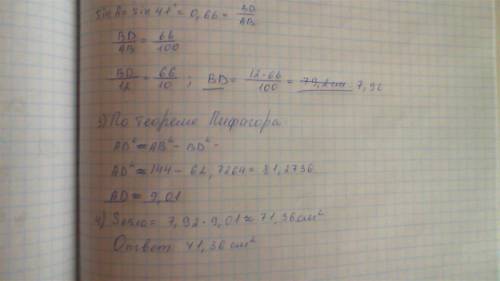 sin A = sin 41° = 0,66 = BD/AB
BD/AB = 66/100
BD/12 = 66/10 ; BD = 12·66/100 = 79,2 см 7,92
3) По теореме Пифагора
AD² = AB² - BD² =
AD² = 144 - 62,7264 = 81,2736
AD = 9,01
4) = 7,92·9,01 ≈ 71,36 см²
Ответ 71,36 см²